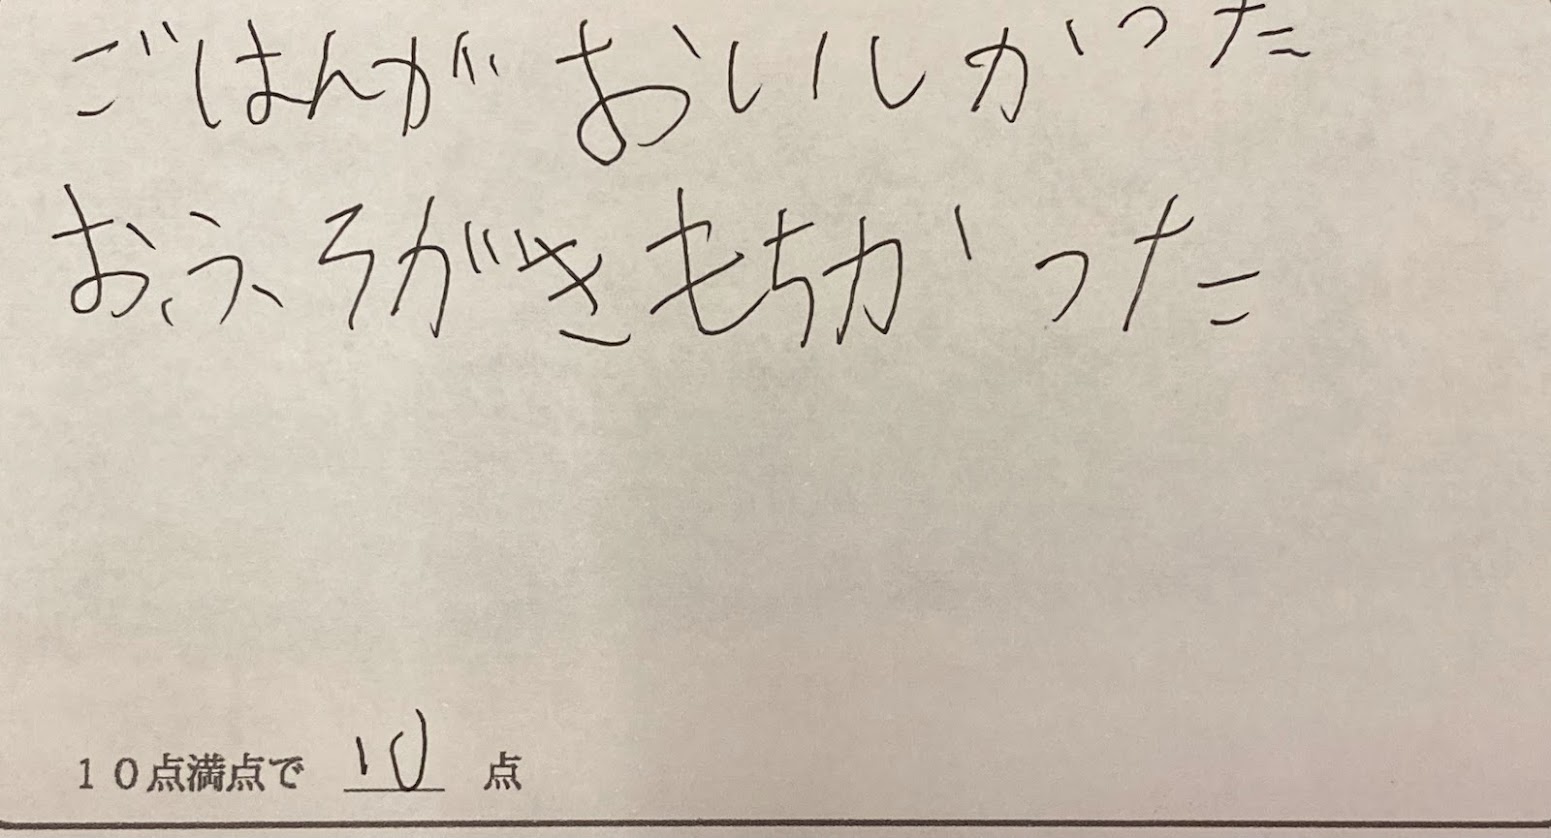 ごはんがおいしかった
おふろがきもちかった
10点満点で 10 点